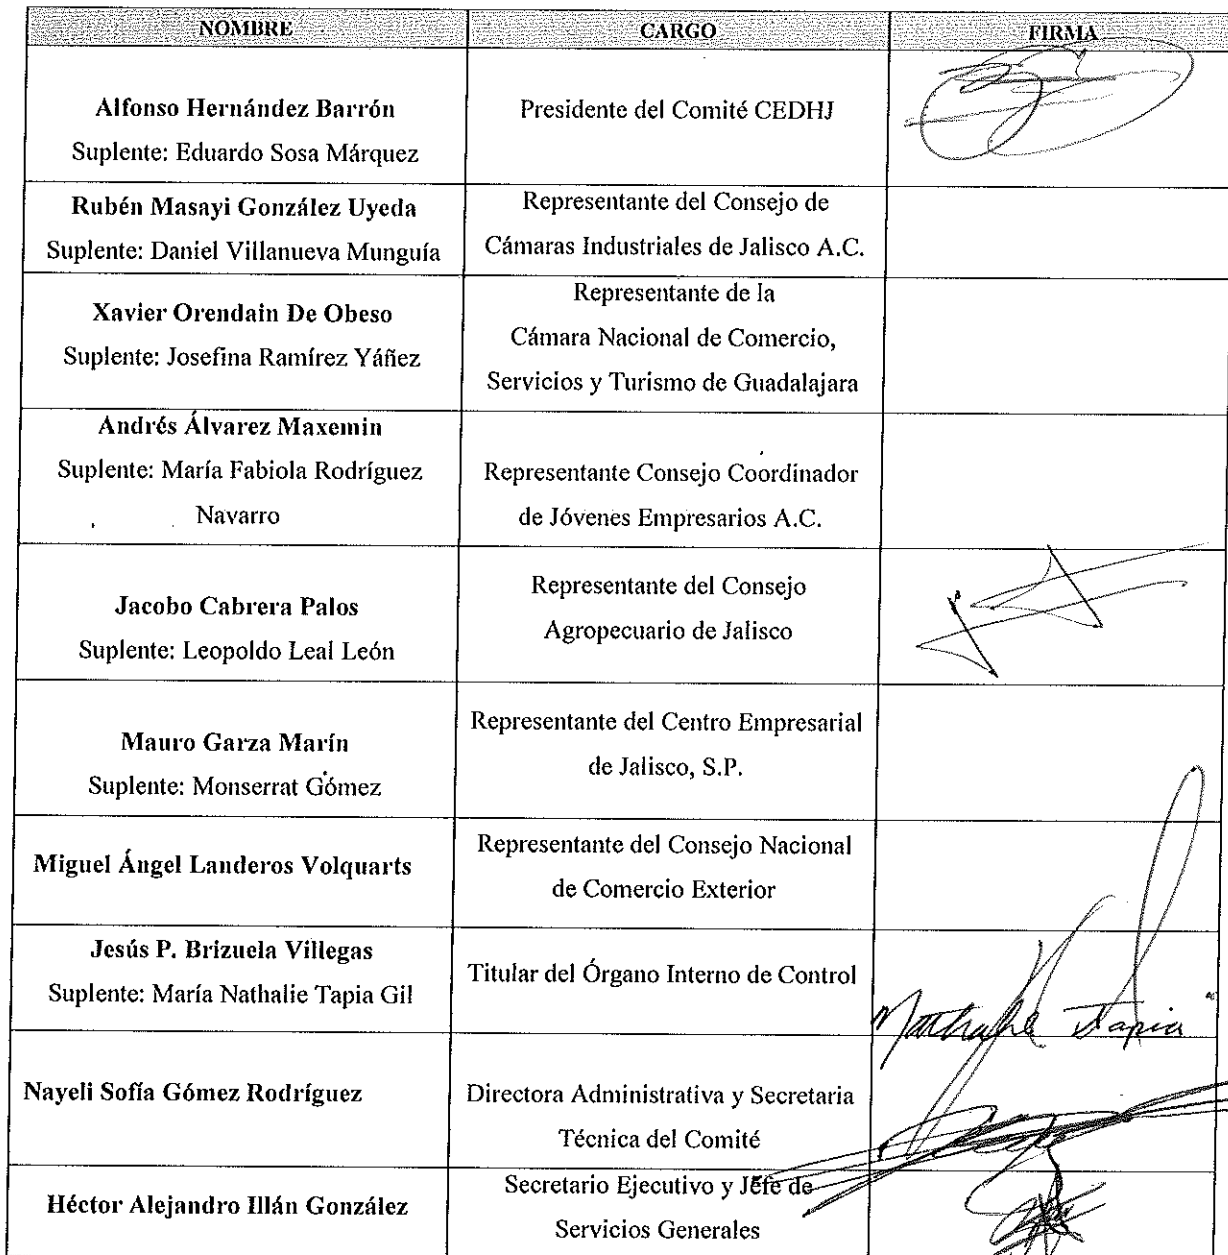 NOMBRE CARGO FIRMA
Alfonso Hernández Barrón
Suplente: Eduardo Sosa Márquez
Presidente del Comité CEDHJ
Rubén Masayi González Uyeda
Suplente: Daniel Villanueva Munguía
Representante del Consejo de
Cámaras Industriales de Jalisco A.C.
Xavier Orendain De Obeso
Suplente: Josefina Ramírez Yáñez
Representante de la
Cámara Nacional de Comercio,
Servicios y Turismo de Guadalajara
Andrés Álvarez Maxemin
Suplente: María Fabiola Rodríguez
Navarro
Representante Consejo Coordinador
de Jóvenes Empresarios A.C.
Jacobo Cabrera Palos
Suplente: Leopoldo Leal León
Representante del Consejo
Agropecuario de Jalisco
Mauro Garza Marín
Suplente: Monserrat Gómez
Representante del Centro Empresarial
de Jalisco, S.P.
Miguel Ángel Landeros Volquarts
Representante del Consejo Nacional
de Comercio Exterior
Jesús P. Brizuela Villegas
Suplente: María Nathalie Tapia Gil
Titular del Órgano Interno de Control
Nathalie Tapia
Nayeli Sofía Gómez Rodríguez
Directora Administrativa y Secretaria
Técnica del Comité
Héctor Alejandro Illán González
Secretario Ejecutivo y Jefe de
Servicios Generales